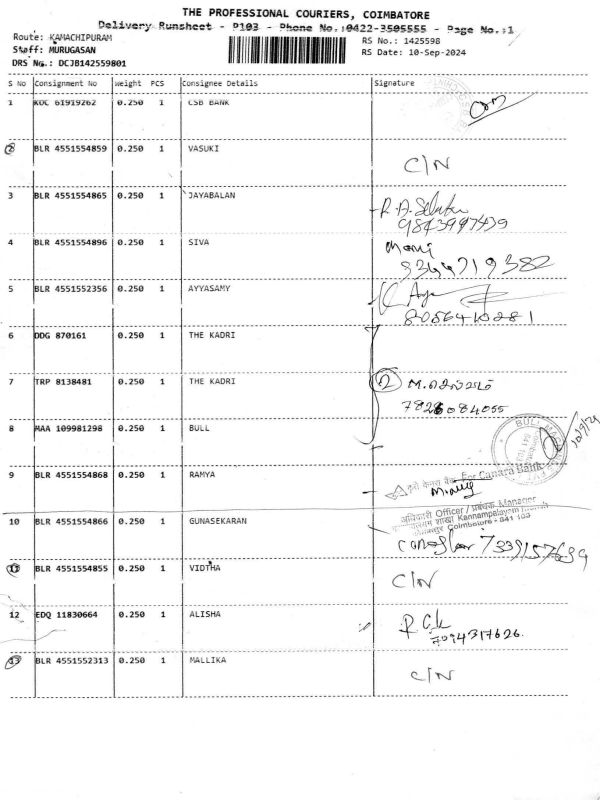 THE PROFESSIONAL COURIERS, COIMBATORE
Delivery Runsheet - P103 - Phone No.:0422-3505555 - Page No.:1
Route: KAMACHIPURAM
Staff: MURUGASAN
DRS No.: DCJB142559801
RS No.: 1425598
RS Date: 10-Sep-2024
S No Consignment No weight PCS Consignee Details Signature
1 KOC 61919262 0.250 1 CSB BANK
2 BLR 4551554859 0.250 1 VASUKI C/N
3 BLR 4551554865 0.250 1 JAYABALAN
9843997439
4 BLR 4551554896 0.250 1 SIVA Mani
9344719382
5 BLR 4551552356 0.250 1 AYYASAMY
8056410281
6 DDG 870161 0.250 1 THE KADRI
7 TRP 8138481 0.250 1 THE KADRI 2 M. செல்வம்
7826084055
8 MAA 109981298 0.250 1 BULL
BULL
10/9/24
9 BLR 4551554868 0.250 1 RAMYA
कृते केनरा बैंक For Canara Bank
अधिकारी Officer / प्रबंधक Manager
शाखा Kannampalayam Branch
Coimbatore - 641 103
10 BLR 4551554866 0.250 1 GUNASEKARAN
7339157639
11 BLR 4551554855 0.250 1 VIDTHA C/N
12 EDQ 11830664 0.250 1 ALISHA
7094317626.
13 BLR 4551552313 0.250 1 MALLIKA C/N